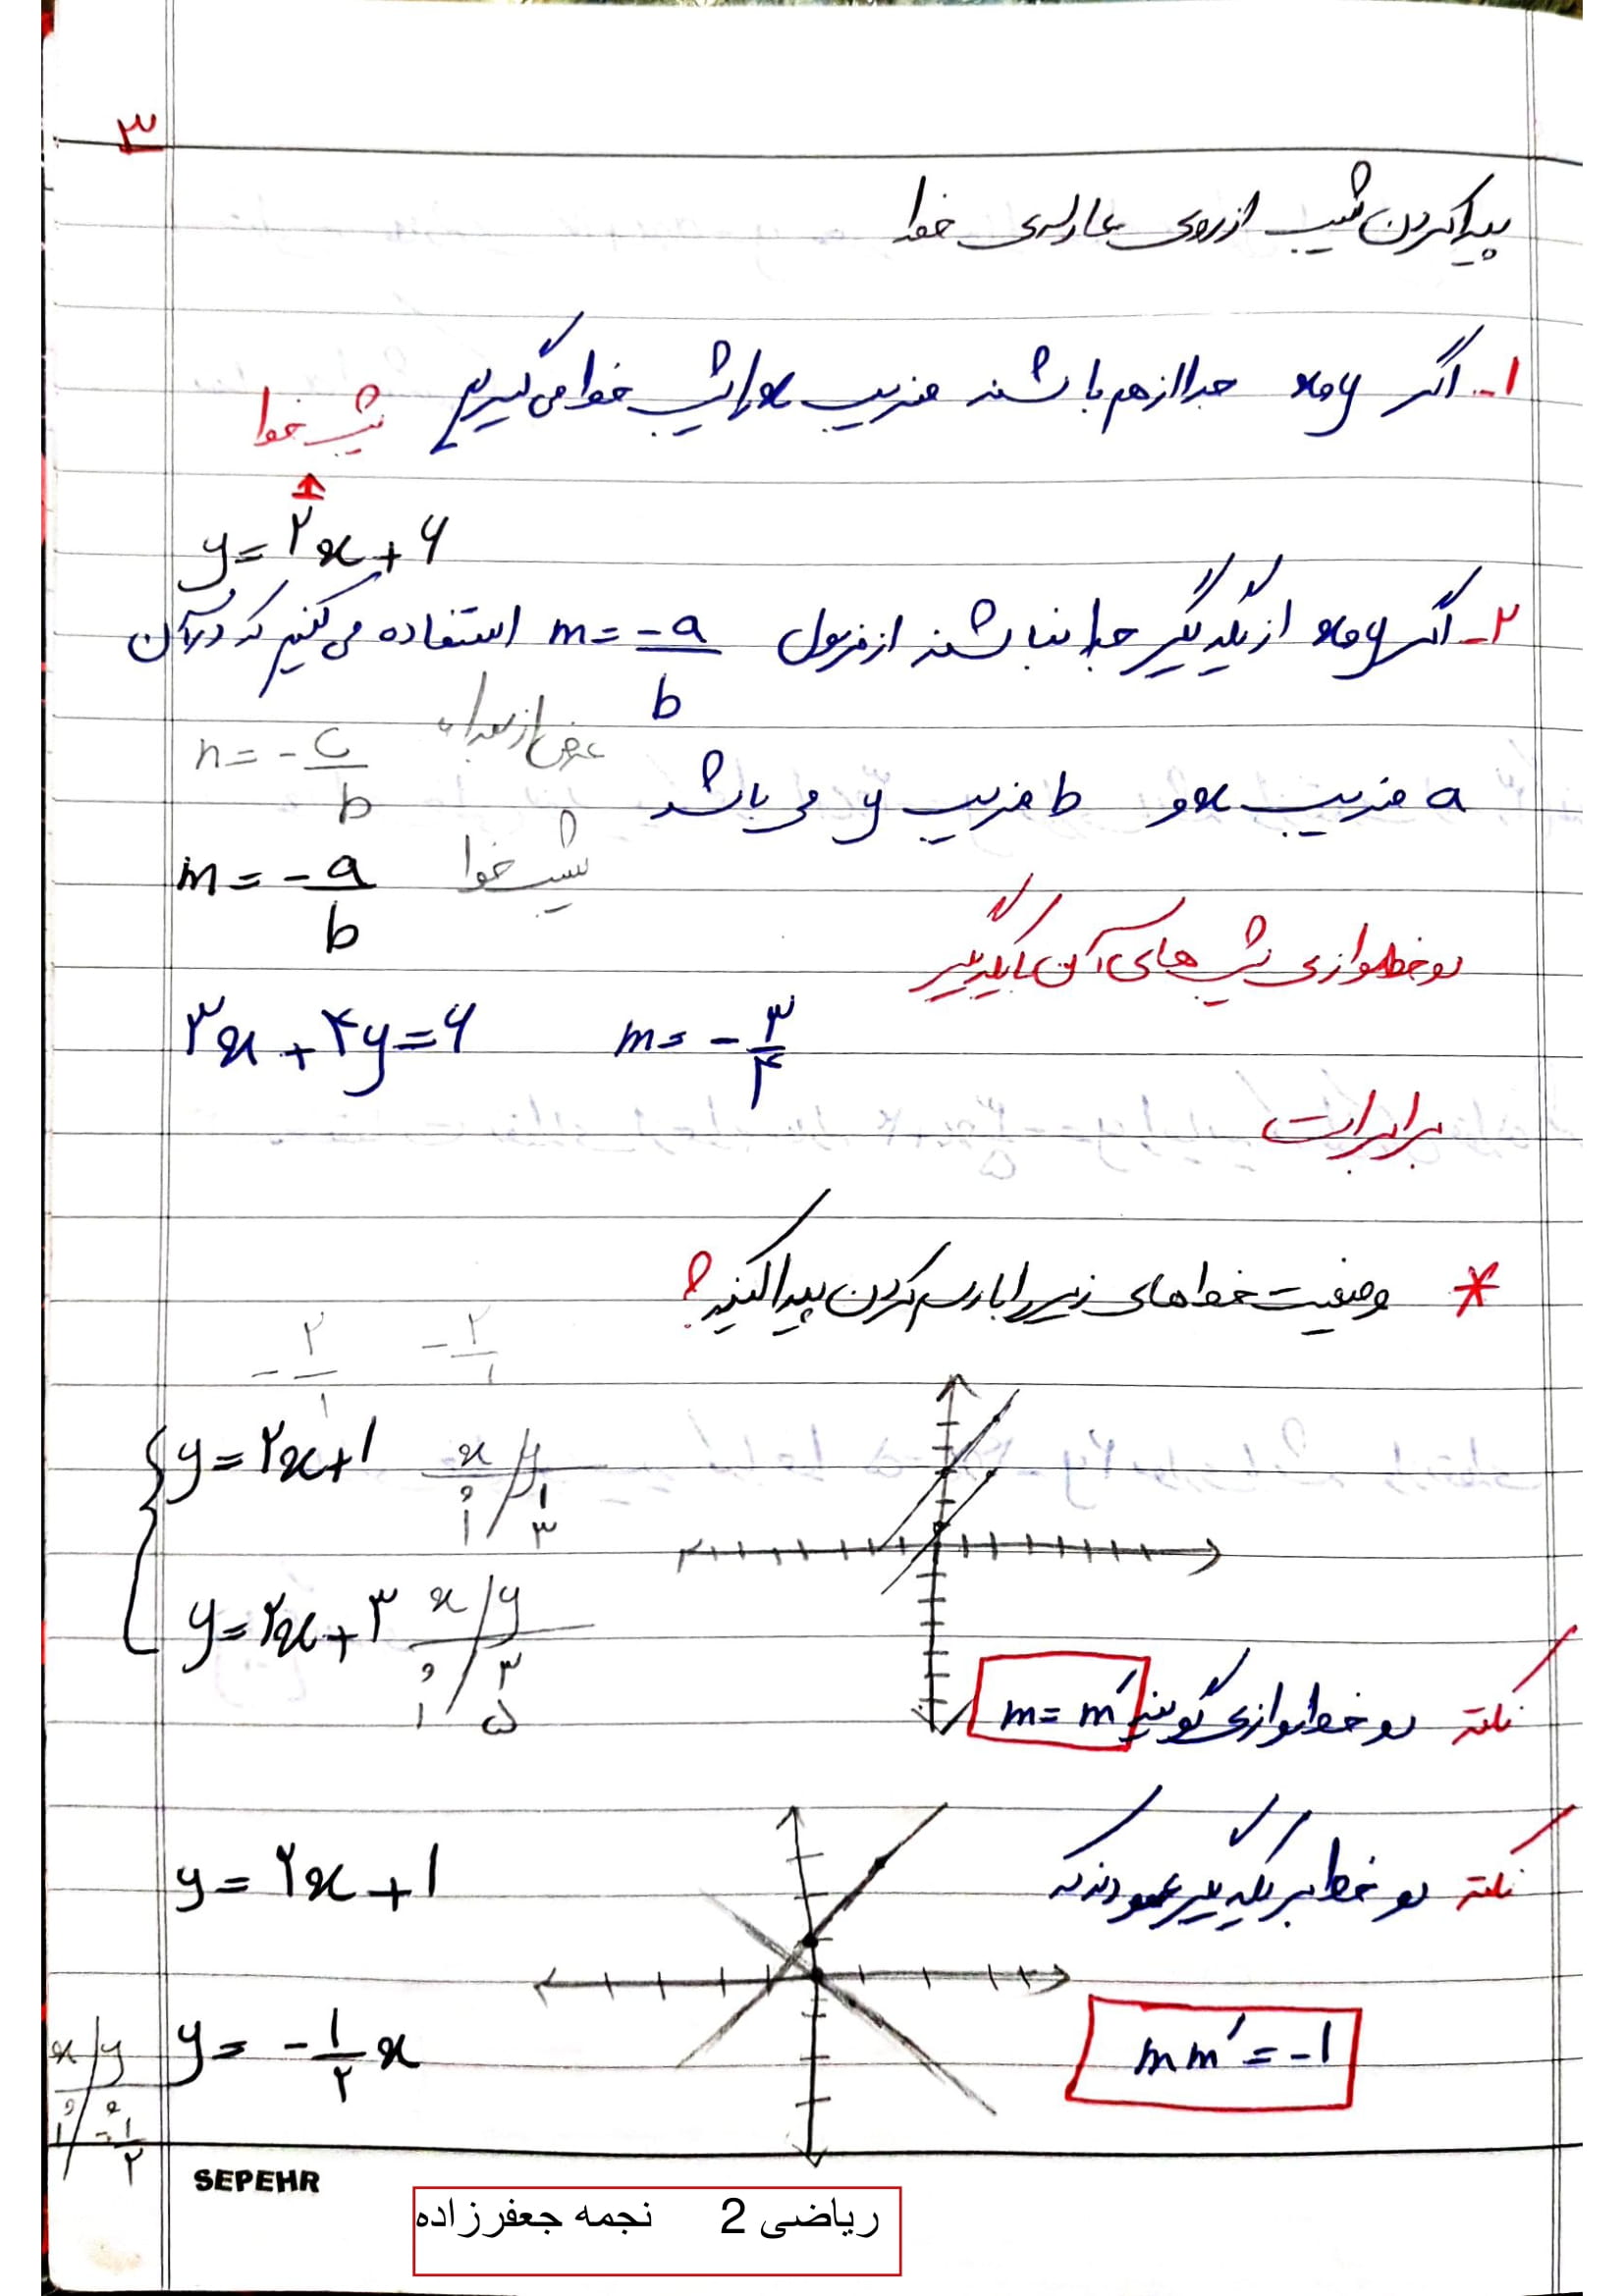 ۳
پیدا کردن شیب از روی معادله‌ی خط
۱- اگر x و y جدا از هم باشند ضریب x را شیب خط می‌گیریم
شیب خط
y = ۲x + ۶
۲- اگر x و y از یکدیگر جدا نباشند از فرمول m = -a/b استفاده می کنیم که در آن
a ضریب x و b ضریب y می باشد
n = -c/b عرض از مبدا
m = -a/b شیب خط
دو خط موازی شیب های آن با یکدیگر
برابر است
۳x + ۴y = ۶ m = -۳/۴
* وضعیت خط های زیر را با رسم کردن پیدا کنید؟
-۲/۱ -۲/۱
y = ۲x + ۱
x y
۰ ۱
۱ ۳
y = ۲x + ۳
x y
۰ ۳
۱ ۵
نکته دو خط موازی گویند m = m′
نکته دو خط بر یکدیگر عمودند که
y = ۲x + ۱
mm′ = -۱
y = -۱/۲ x
x y
۰ ۰
۱ -۱/۲
SEPEHR
ریاضی 2 نجمه جعفرزاده